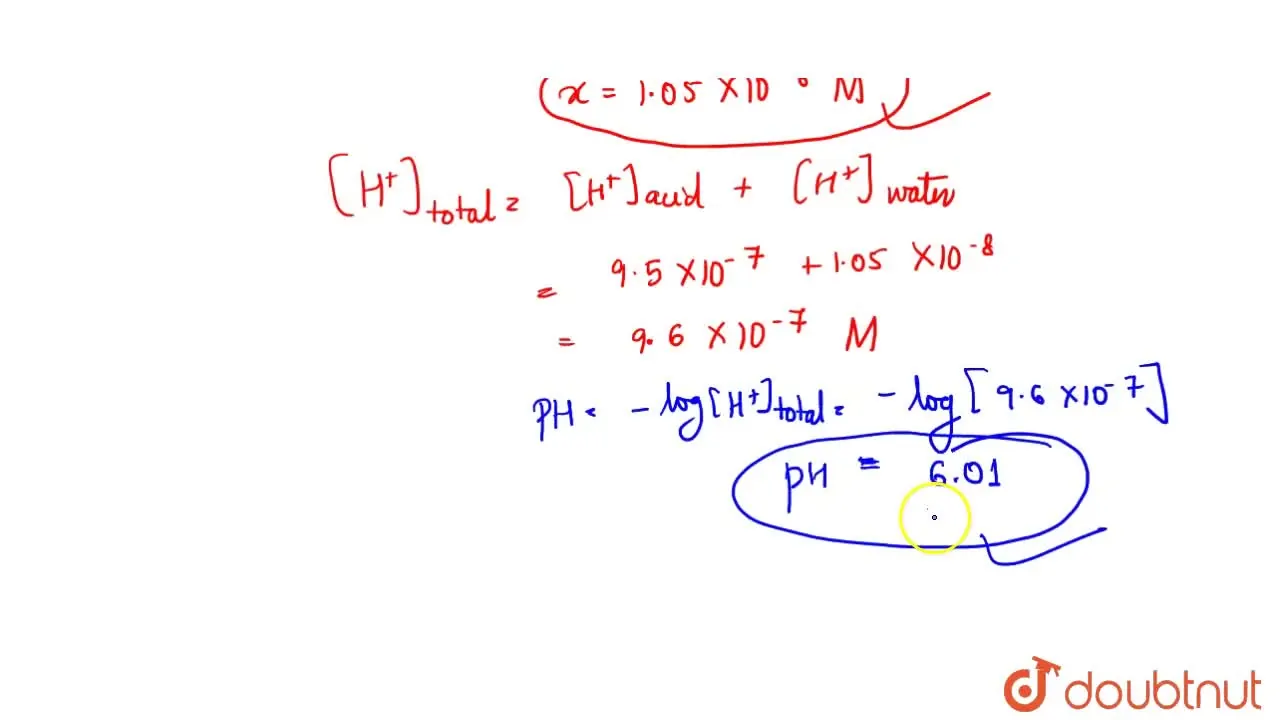 (x = 1.05 X10 M
[H+]total = [H+]acid + [H+]water
= 9.5 X10-7 + 1.05 X10-8
= 9.6 X 10-7 M
PH = - log[H+]total = - log[ 9.6 X10-7]
pH = 6.01
doubtnut